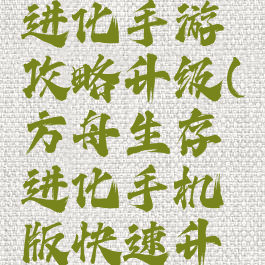 进化手游
攻略升级(
方舟生存
进化手机
版快速升